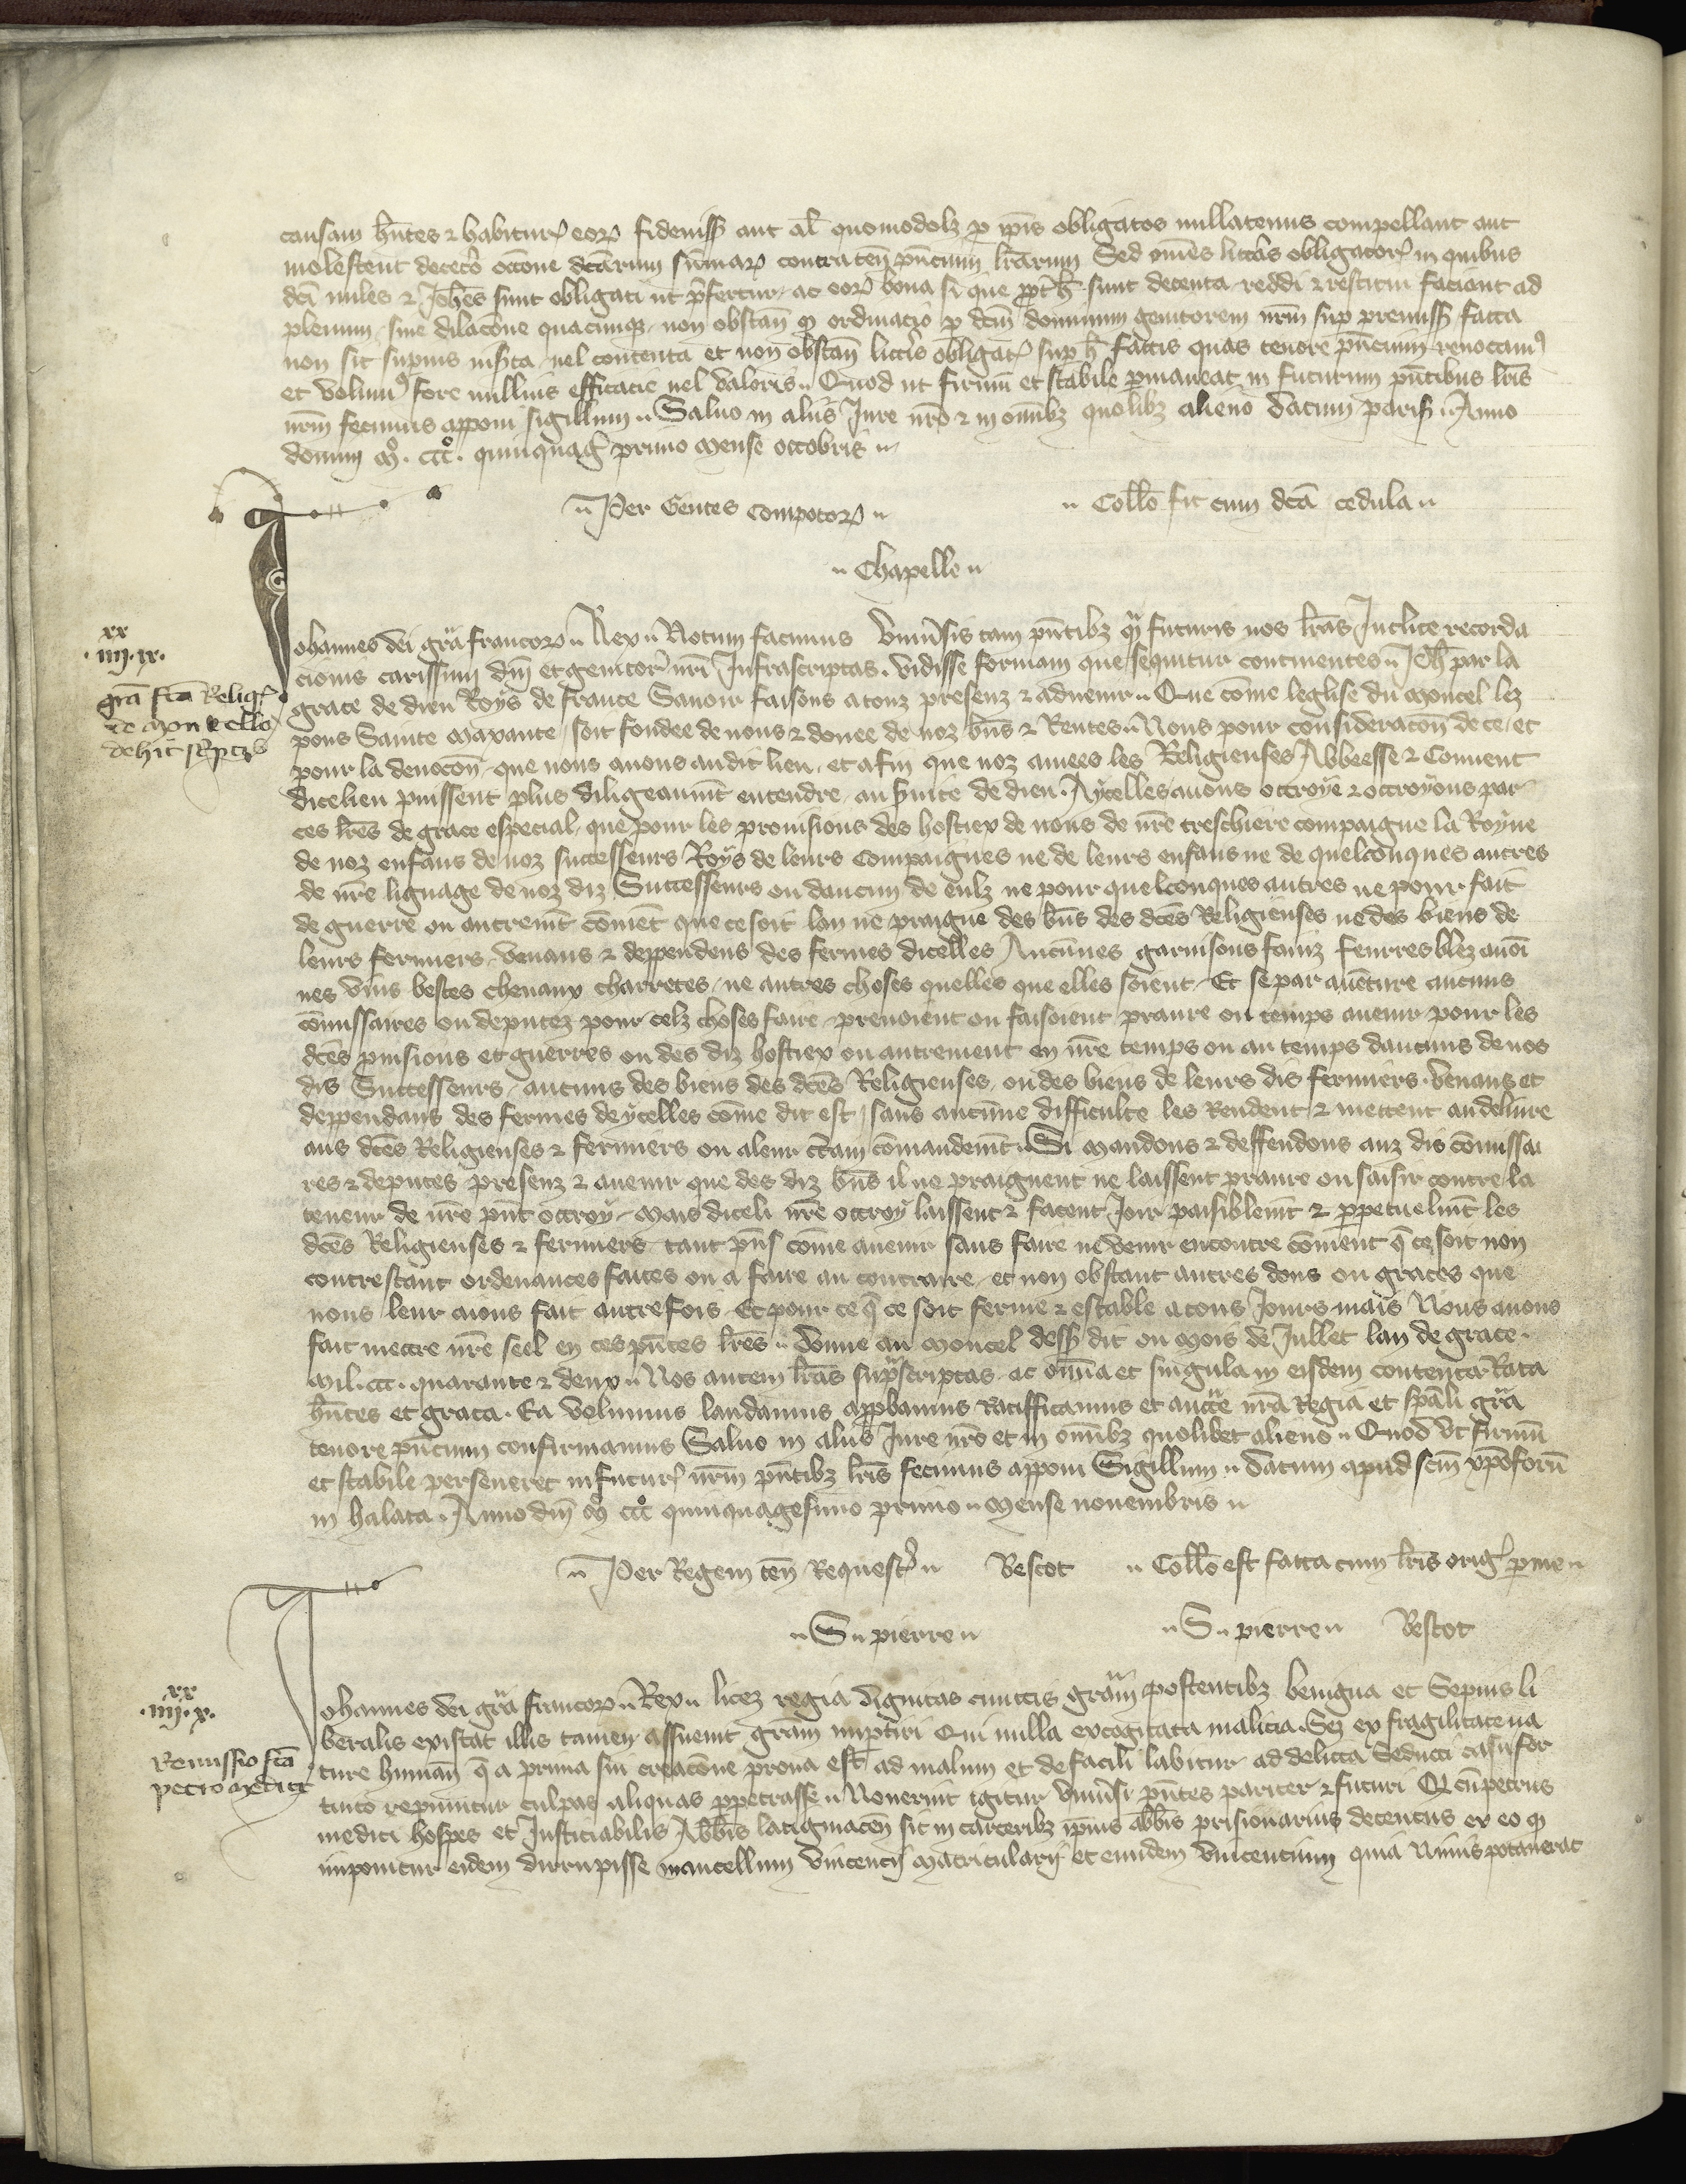 causam hn̄tes ⁊ habituꝝ eoꝝ fideiuss̄ aut al̄ quomodolꝫ ꝓ ip̄is obligatos nullatenus compellant aut
molestent decet̓o occōne dc̄arum sūmaꝝ contra ten̄ pn̄cium lr̄arum Sed om̄es litt̓as obligatoꝝ in quibus
dc̄i miles ⁊ Joh̄es sunt obligati ut p̄fertur ac eoꝝ bona si que ꝓpt̓ h̄ sunt detenta reddi ⁊ restitui faciant ad
plenum sine dilacōne quacumqꝫ non obstan̄ ꝙ ordinacio ꝑ dc̄m̄ dominum genitorem nr̄m suꝑ premiss̄ facta
non sit superius inserta uel contenta et non obstan̄ litt̓is obligat̓ suꝑ h̄ factis quas tenore pn̄cium reuocamꝰ
et volumꝰ fore nullius efficacie uel valoris Quod ut firmū et stabile ꝑmaneat in futurum pn̄tibus lr̄is
nr̄m fecimus apponi sigillum Saluo in alijs Jure nr̄o ⁊ in om̄ibꝫ quolibꝫ alieno datum parisꝰ Anno
domini mͦ. cccͦ. quinquag̓ primo mense octobris
Per Gentes compotoꝝ Coll̄o fit cum dc̄a cedula
Chapelle
Johannes dei gr̄a francoꝝ Rex Notum facimus Vniu̓sis tam pn̄tibꝫ qͣm futuris nos lr̄as Inclite recorda
cionis carissimi dn̄i et genitor̓ nr̄i Infrascriptas vidisse formam que sequitur continentes Joh̄ par la
grace de dieu Roys de france Sauoir faisons a touz presenz ⁊ aduenir Que cōme leglise du Moncel lez
pons Sainte Maxante soit fondee de nous ⁊ donee de noz bn̄s ⁊ Rentes Nous pour consideracōn de ce et
pour la deuocōn que nous auons audit lieu et afin que noz amees les Religieuses Abbeesse ⁊ Conuent
dicelieu puissent plus diligeaumn̄t entendre au s̓uice de dieu Aycelles auons ottroye ⁊ ottroyons par
ces lr̄es de grace especial que pour les prouisions des hostiex de nous de nr̄e treschiere compaigne la Royne
de noz enfans de noz successeurs Roys de leurs compaignes ne de leurs enfans ne de quelconques autres
de nr̄e lignage de noz diz Successeurs ou daucun de eulz ne pour quelconques autres ne pour fait
de guerre ou autremn̄t cōmēt que ce soit lan ne praigne des bn̄s des dc̄es Religieuses ne des biens de
leurs fermiers venans ⁊ deppendens des fermes dicelles Aucunes garnisons fainz feurres blez auoi
nes vins bestes cheuaux charretes ne autres choses quelles que elles soient Et se par auēture aucuns
cōmissaires ou deputez pour telz choses faire prenoient ou faisoient pranre ou temps auenir pour les
dc̄es ꝓuisions et guerres ou des diz hostiex ou autrement en nr̄e temps ou au temps daucuns de nos
dis Successeurs aucuns des biens des dc̄es Religieuses ou des biens de leurs dis fermiers venans et
deppendans des fermes deycelles cōme dit est sans aucune difficulte les Rendent ⁊ mettent au deliure
aus dc̄es Religieuses ⁊ fermiers ou a leur c̄tain cōmandemn̄t Si Mandons ⁊ deffendons auz dis cōmissai
res ⁊ deputes presenz ⁊ auenir que des diz bn̄s il ne praignent ne laissent pranre ou saisir contre la
teneur de nr̄e pn̄t ottroy Mais diceli nr̄e ottroy laissent ⁊ facent Joir paisiblemn̄t ⁊ ꝑpetuelmn̄t les
dc̄es Religieuses ⁊ fermiers tant pn̄s cōme auenir sans faire ne venir encontre cōment q̄ ce soit non
contrestant ordenances faites ou a faire au contraire et non obstant autres dons ou graces que
nous leur aions fait autrefois Et pour ce q̄ ce soit ferme ⁊ estable a tous Jours mais Nous auons
fait mettre nr̄e seel en ces pn̄tes lr̄es donne au Moncel dess̄ dit ou Mois de Jullet lan de grace
Mil. ccc. quarante ⁊ deux Nos autem lr̄as supͣscriptas ac om̄ia et singula in eisdem contenta Rata
hn̄tes et grata Ea volumus laudamus apꝓbamus Ratifficamus et auct̄te nr̄a Regia et spāli gr̄a
tenore pn̄cium confirmamus Saluo in alijs Jure nr̄o et in om̄ibꝫ quolibet alieno Quod vt firmū
et stabile perseueret in futur̓ nr̄m pn̄tibꝫ lr̄is fecimus apponi Sigillum datum apud sc̄m xp̄oforū
in halata Anno dn̄i Mͦ cccͦ quinquagesimo primo Mense nouembris
Per Regem ten̄ Request̓ Bescot Coll̄o est facta cum lr̄is orig̓ ꝑ me
S pierre S pierre Bescot
xx
iiij. ix.
gr̄a fc̄a Relig̓
de Moncello
de hic sc̓ptꝫ
Johannes dei gr̄a francoꝝ Rex licet regia dignitas cunctis gr̄am postentibꝫ benigna et Sepius li
beralis existat illis tamen assueuit gr̄am imꝑtiri Qui nulla excogitata malicia Sꝫ ex fragilitate na
ture human̄ q̄ a prima sui creacōne prona est ad malum et de facili labitur ad delicta Seducti casu for
tuito reperiuntur culpas aliquas ꝑpetrasse Nouerint igitur Vniu̓si pn̄tes pariter ⁊ futuri Q̄ cū petrus
medici hospes et Justiciabilis Abb̄is latigniacen̄ sit in carceribꝫ ip̄ius abb̄is prisionarius detentus ex eo ꝙ
imponitur eidem dirrupisse mantellum Vincencij Matricularij et eundem Vincencium quia Nimis potauerat
xx
iiij. x.
Remissio fc̄a
petro Medici